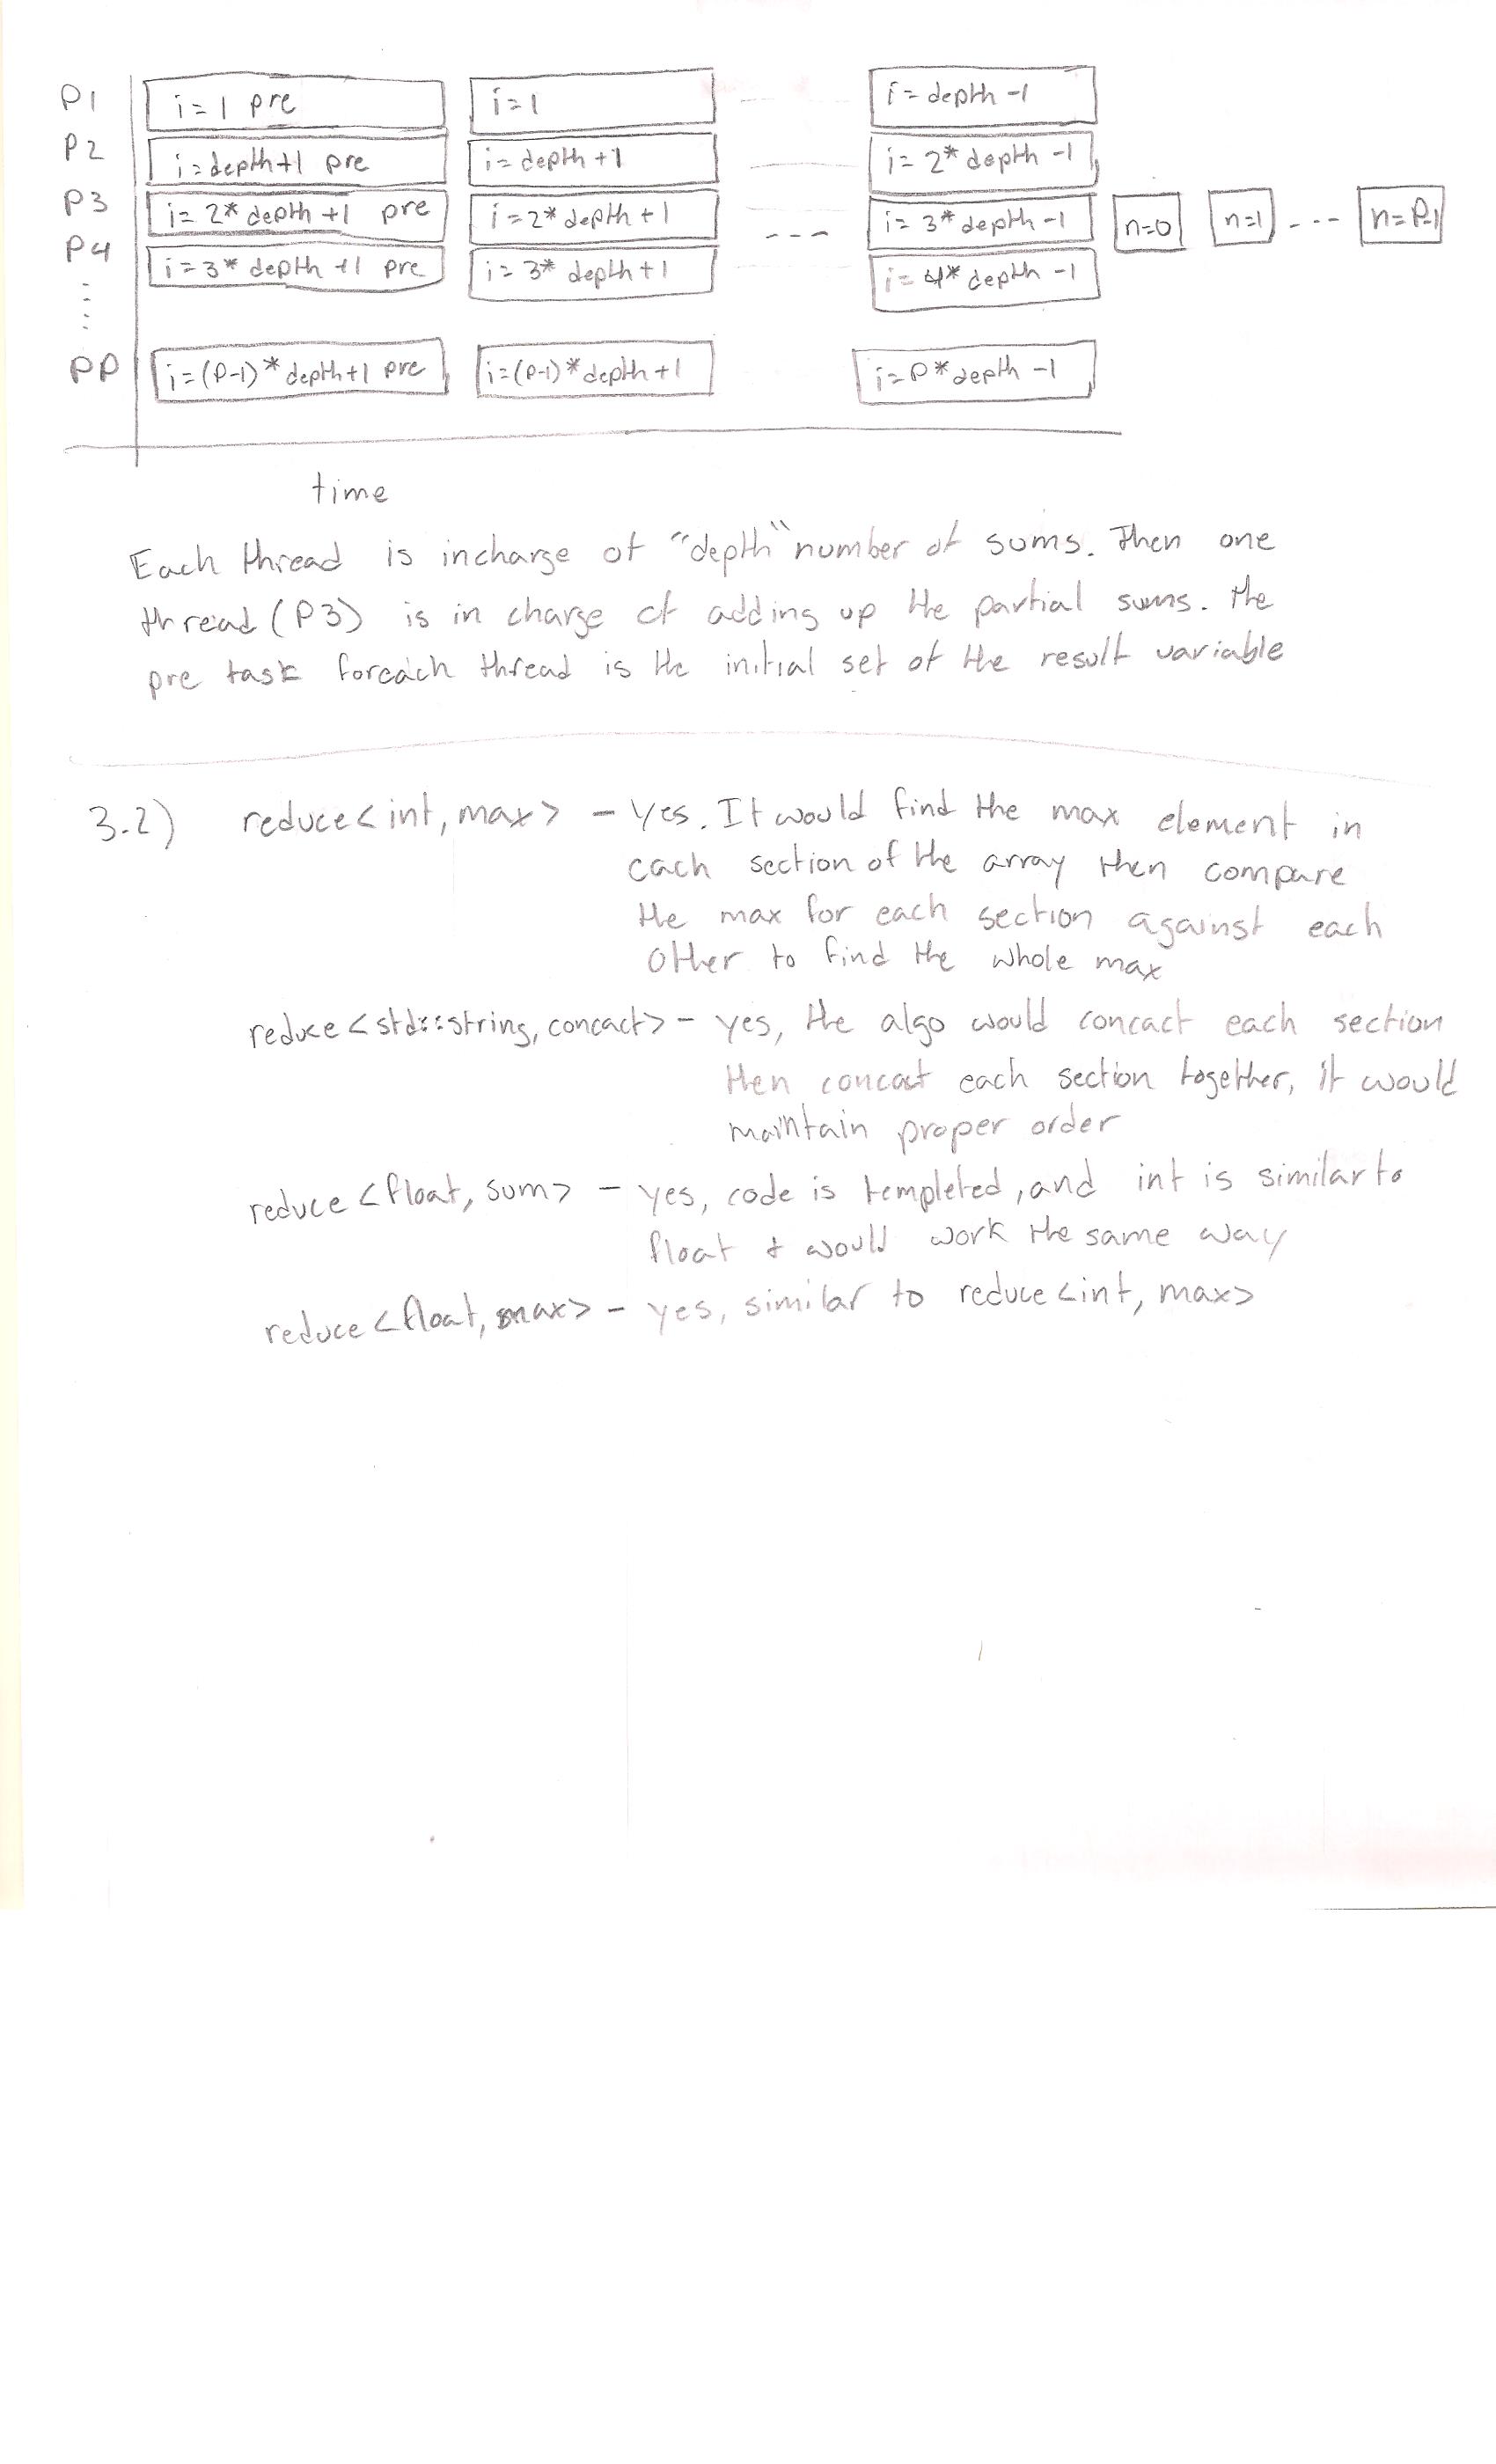 P1 i=1 pre i=1 i=depth-1
P2 i=depth+1 pre i=depth+1 i=2*depth-1
P3 i=2*depth+1 pre i=2*depth+1 --- i=3*depth-1 n=0 n=1 --- n=P-1
P4 i=3*depth+1 pre i=3*depth+1 i=4*depth-1
PP i=(P-1)*depth+1 pre i=(P-1)*depth+1 i=P*depth-1
time
Each thread is incharge of "depth" number of sums. Then one
thread (P3) is in charge of adding up the partial sums. The
pre task foreach thread is the initial set of the result variable
3.2) reduce<int, max> - Yes. It would find the max element in
each section of the array then compare
the max for each section against each
other to find the whole max
reduce<std::string, concact> - yes, the algo would concact each section
then concact each section together, it would
maintain proper order
reduce<float, sum> - yes, code is templeted, and int is similar to
float & would work the same way
reduce<float, max> - yes, similar to reduce<int, max>